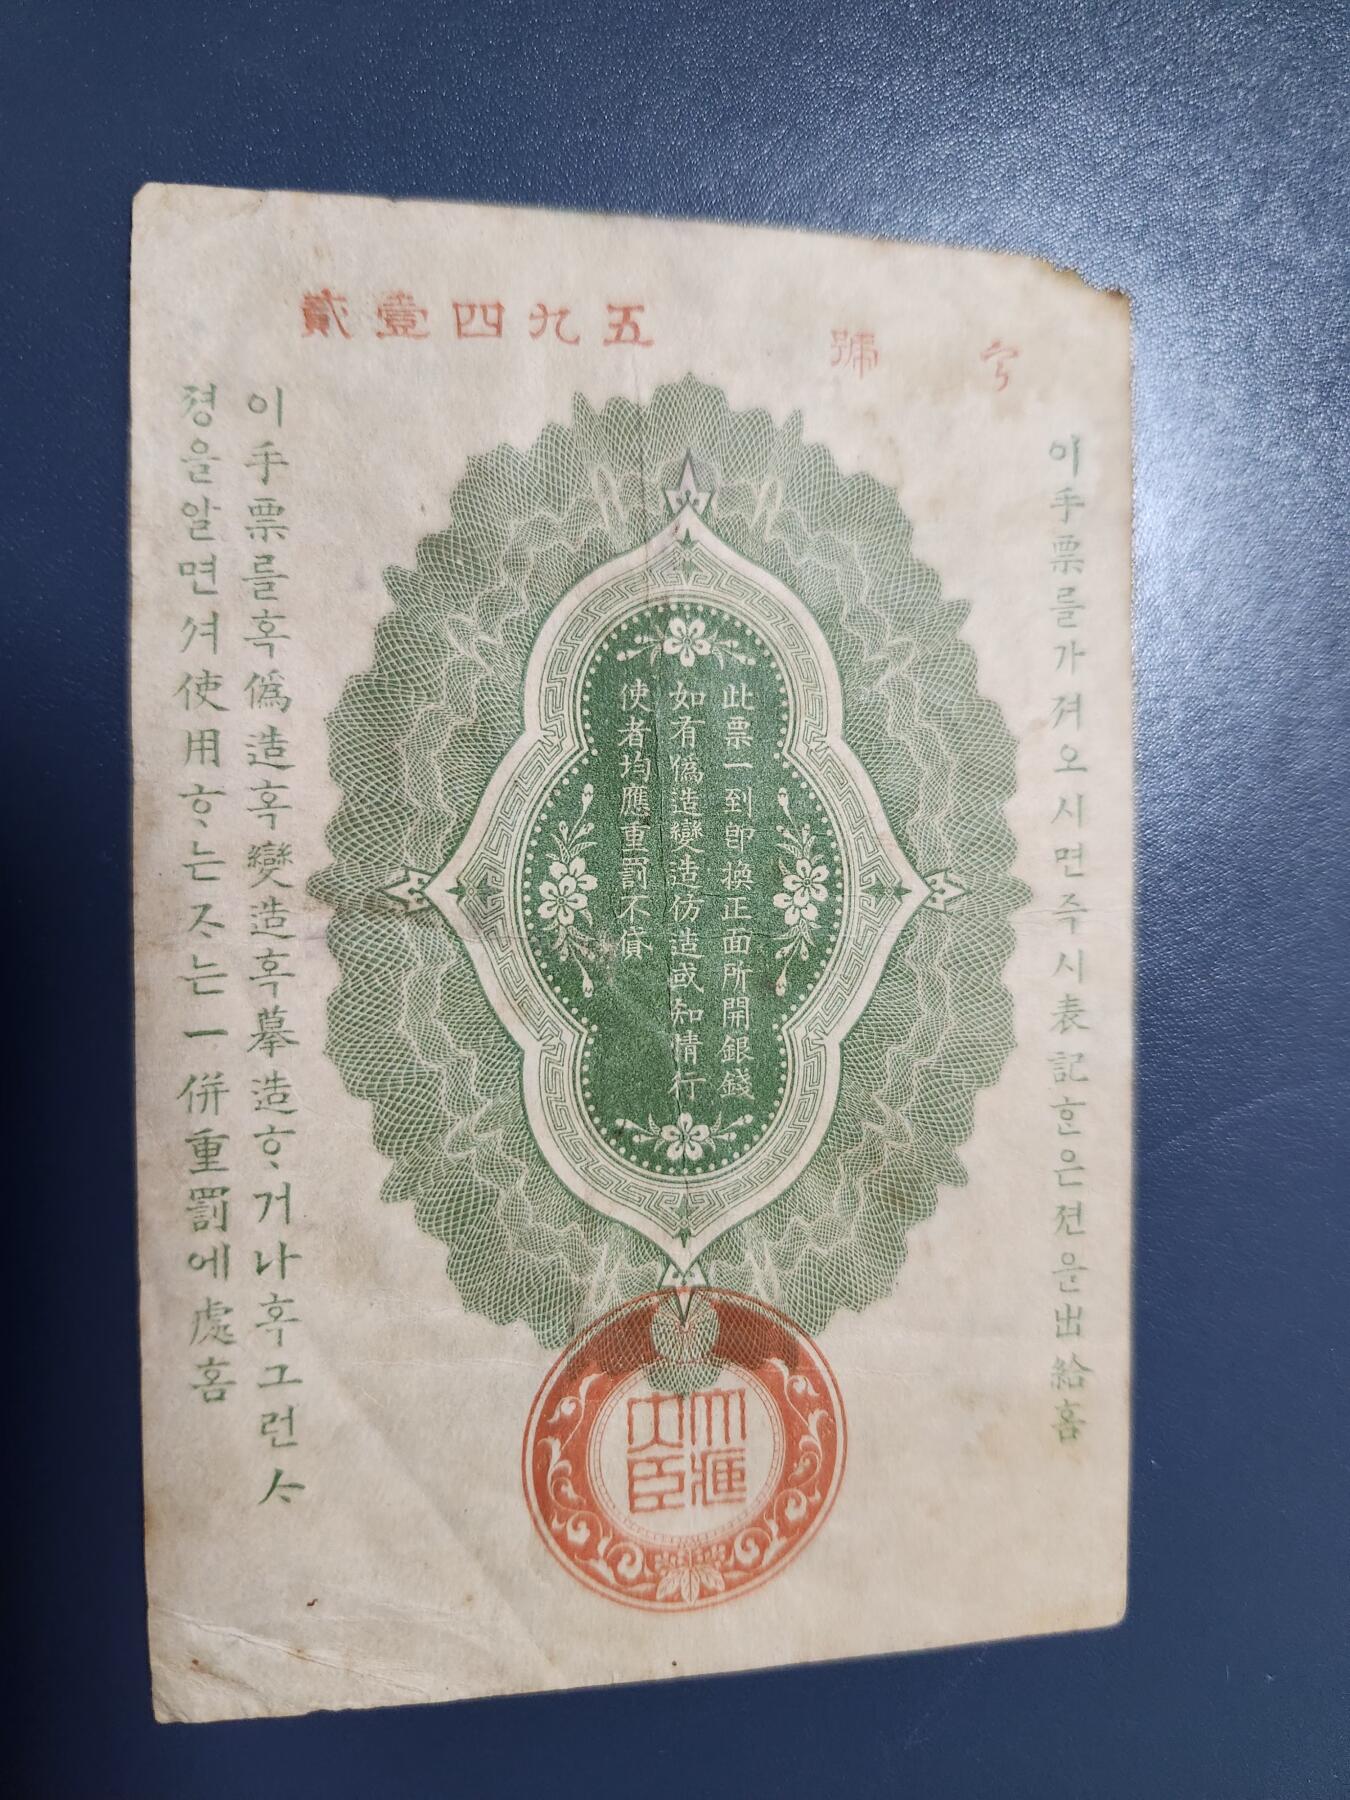 字 號
五九四壹貳
이手票를가져오시면즉시表記ᄒᆞᆫ은젼을出給홈
此票一到即換正面所開銀錢
如有僞造變造仿造或知情行
使者均應重罰不貸
이手票를혹僞造혹變造혹摹造ᄒᆞ거나혹그런ᄉᆞ
졍을알면셔使用ᄒᆞ는ᄌᆞ는一倂重罰에處홈
大滙
大臣